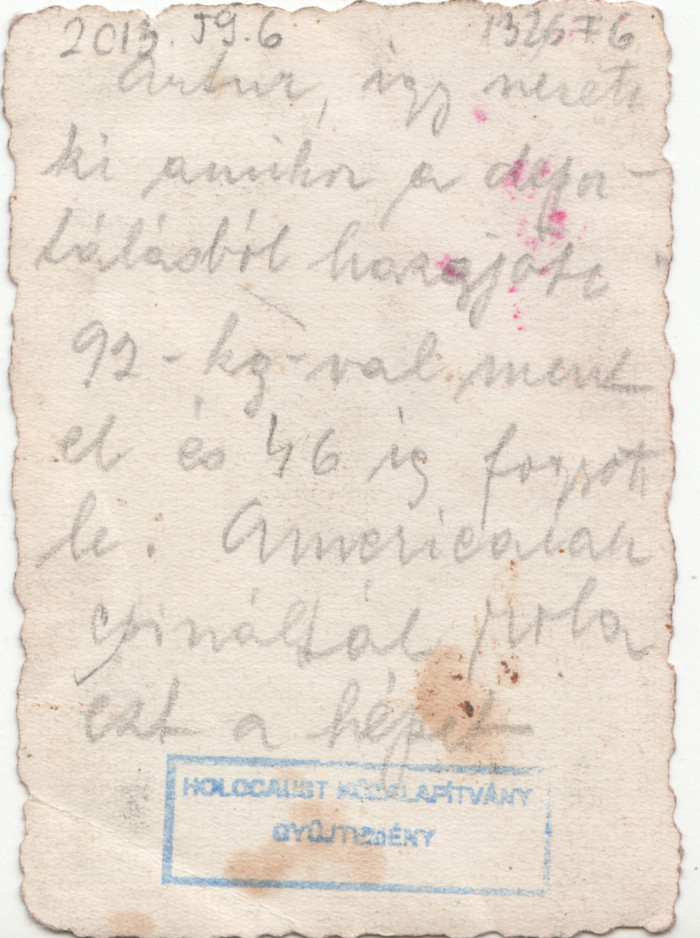 2013. 59.6 132676
Artur, igy nezett
ki amikor a depor-
tálásból hazajött
92-kg-val ment
el és 46 ig fogyott
le. Americaiak
csináltál rola
ezt a képet
HOLOCAUST KÖZALAPÍTVÁNY
GYŰJTEMÉNY